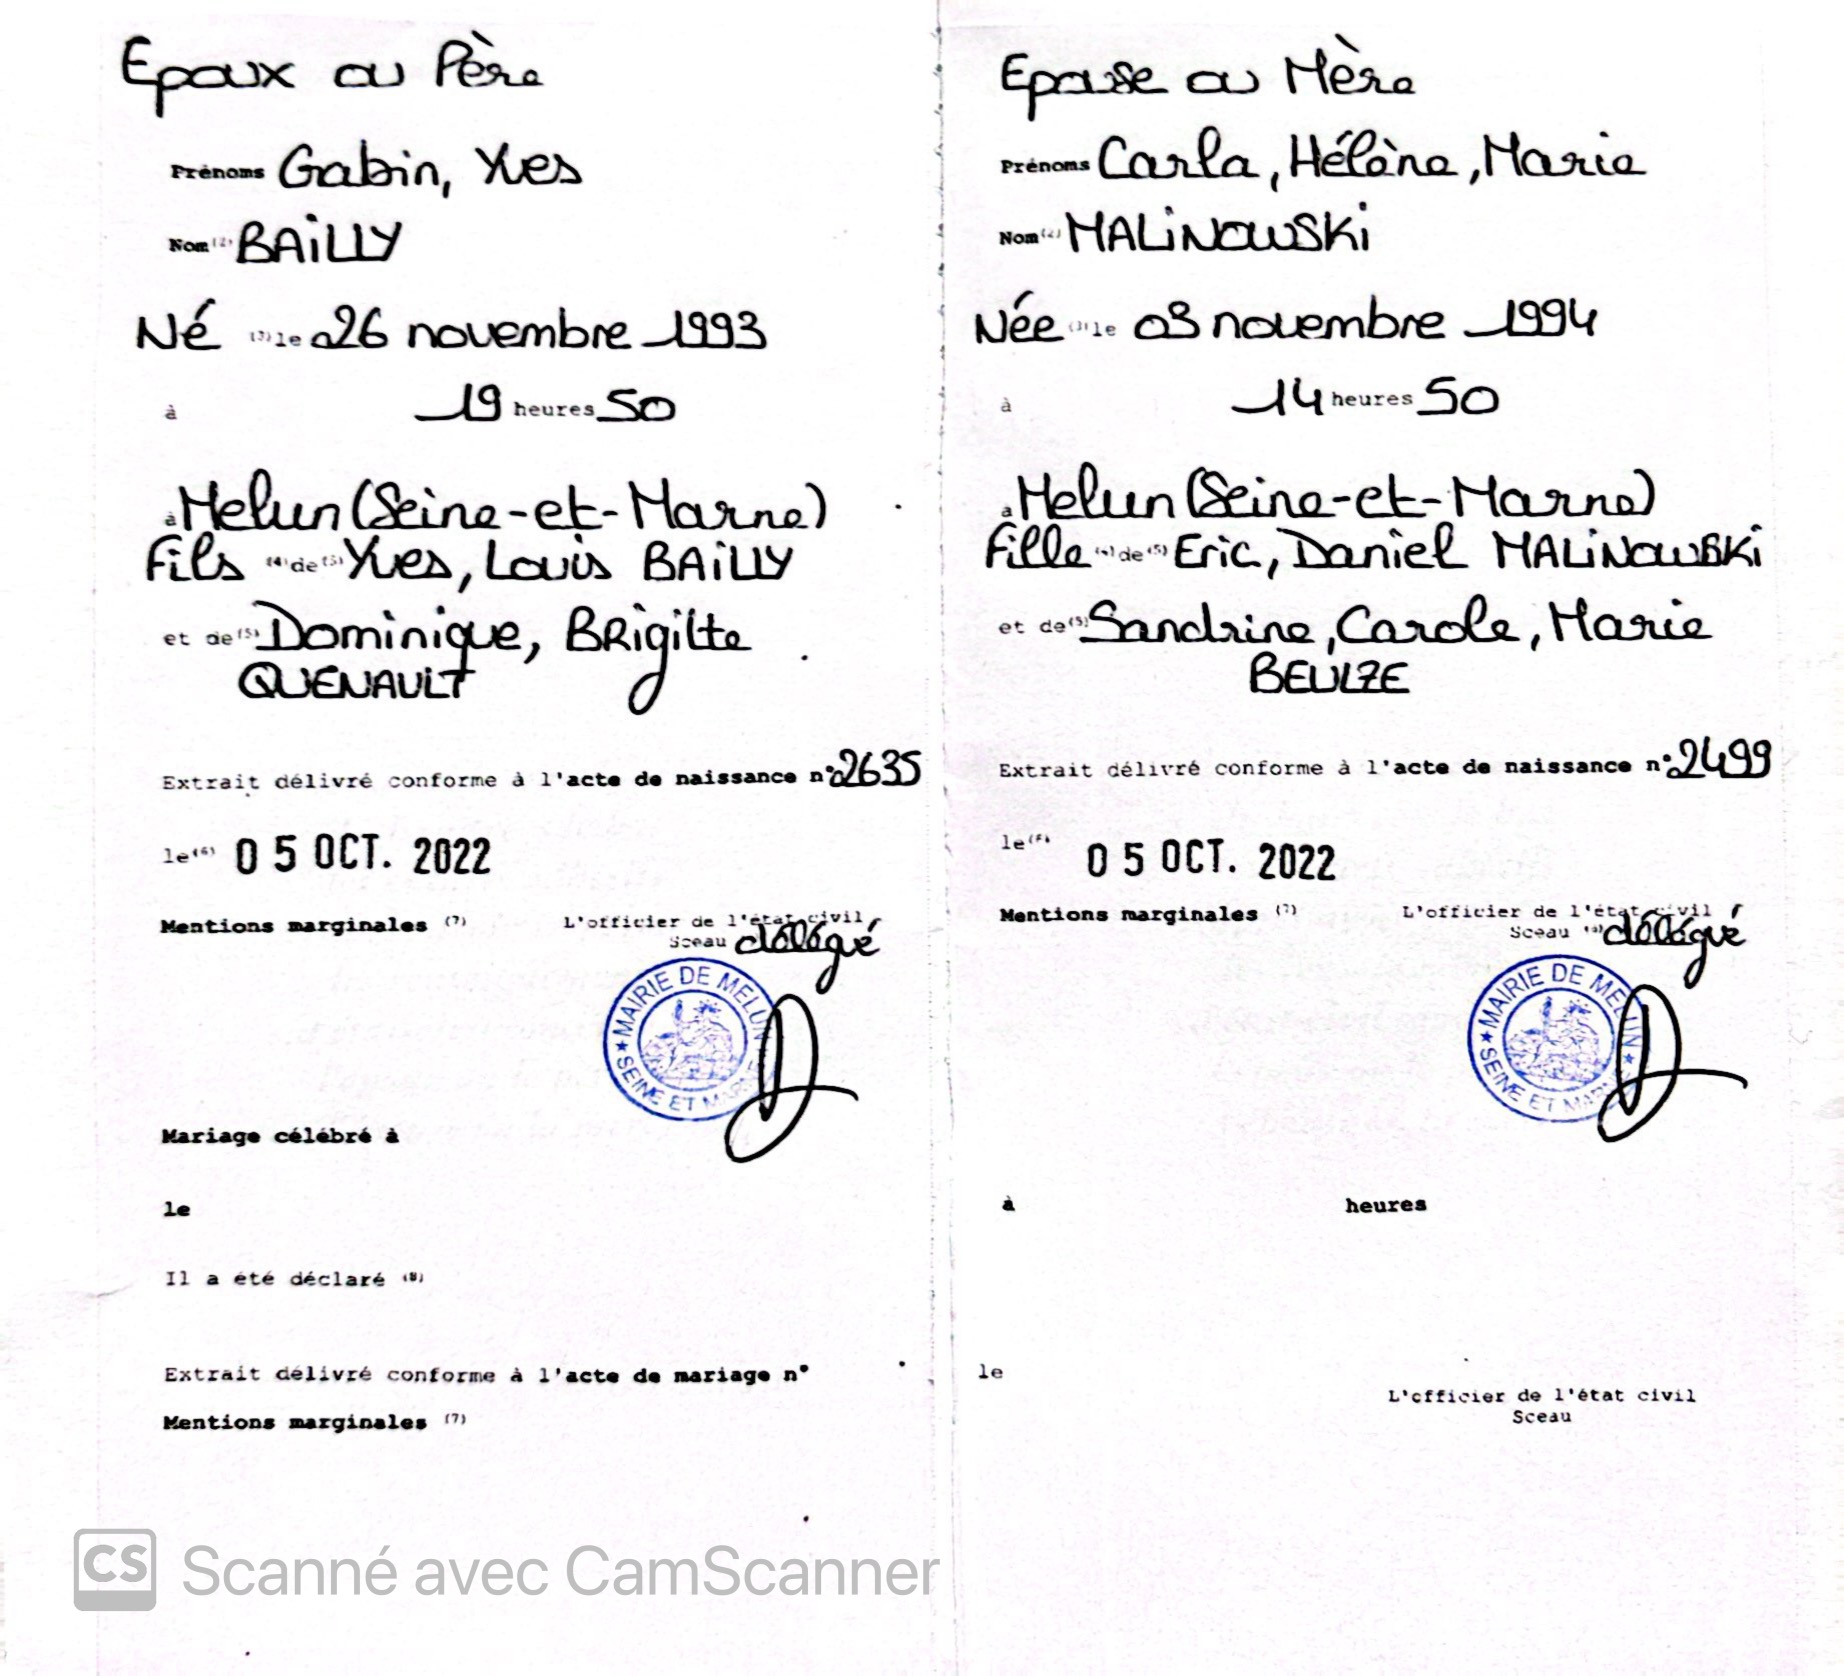 Epoux ou Père
Prénoms Gabin, Yves
Nom (2) BAiLLY
Né (3) le 26 novembre 1993
à 19 heures 50
à Melun (Seine-et-Marne)
Fils (4) de (5) Yves, Louis BAiLLY
et de (5) Dominique, BRigitte
QUENAULT
Extrait délivré conforme à l'acte de naissance n° 2635
le (6) 05 OCT. 2022
Mentions marginales (7)
L'officier de l'état civil
Sceau délégué
MAIRIE DE MELUN
SEINE ET MARNE
Mariage célébré à
le
Il a été déclaré (8)
Extrait délivré conforme à l'acte de mariage n°
Mentions marginales (7)
Epouse ou Mère
Prénoms Carla, Hélène, Marie
Nom (2) MALiNOWSKi
Née (3) le 03 novembre 1994
à 14 heures 50
à Melun (Seine-et-Marne)
Fille (4) de (5) Eric, Daniel MALiNOWSKi
et de (5) Sandrine, Carole, Marie
BEULZE
Extrait délivré conforme à l'acte de naissance n° 2499
le 05 OCT. 2022
Mentions marginales (7)
L'officier de l'état civil
Sceau délégué
MAIRIE DE MELUN
SEINE ET MARNE
à heures
le
L'officier de l'état civil
Sceau
CS Scanné avec CamScanner